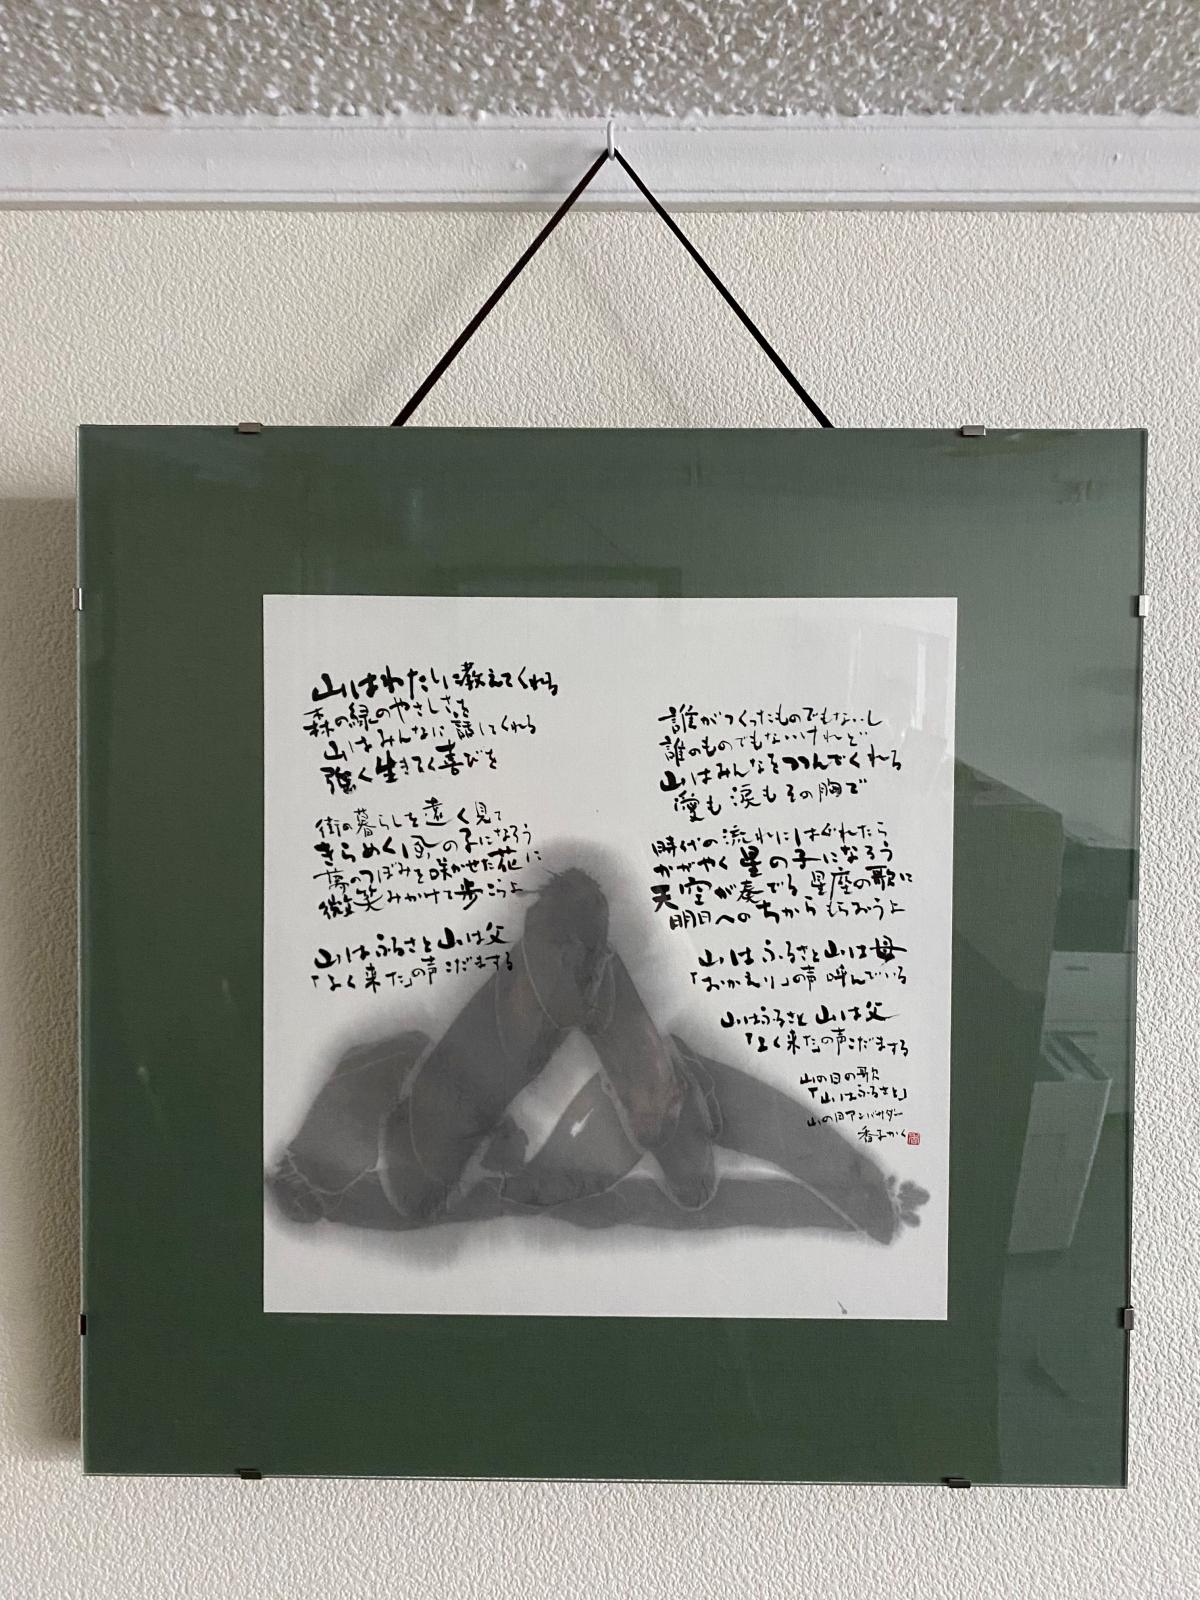 山はわたしに教えてくれる
森の緑のやさしさを
山はみんなに話してくれる
強く生きてく喜びを
街の暮らしを遠く見て
きらめく風の子になろう
夢のつぼみを咲かせた花に
微笑みかけて歩こうよ
山はふるさと山は父
「よく来た」の声こだまする
誰がつくったものでもないし
誰のものでもないけれど
山はみんなをつつんでくれる
愛も涙もその胸で
時代の流れにはぐれたら
かがやく星の子になろう
天空が奏でる星座の歌に
明日へのちからもらおうよ
山はふるさと山は母
「おかえり」の声呼んでいる
山はふるさと山は父
「よく来た」の声こだまする
山の日の歌
「山はふるさと」
山の日アンバサダー
香子かく